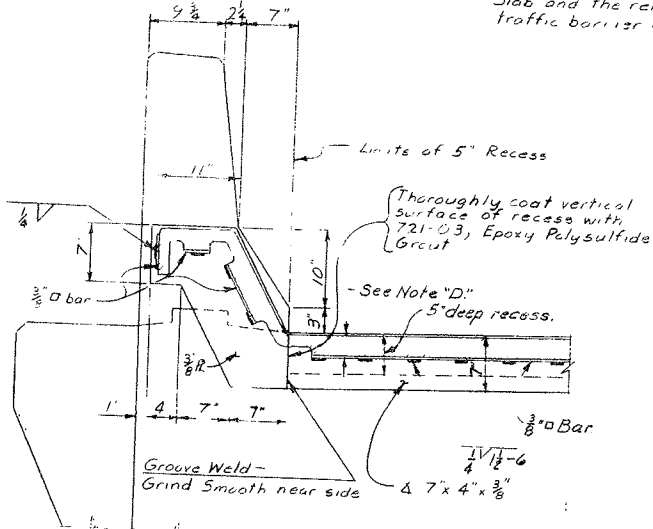 9 3/4 2 1/4 7"
Slab and the
traffic barrier
Limits of 5" Recess
11"
Thoroughly coat vertical
surface of recess with
721-03, Epoxy Polysulfide
Grout
1/4
7"
10"
3/8" □ bar
- See Note "D."
3"
5" deep recess.
3/8 PL
1' 4 7" 7"
3/8" □ Bar
1/4 1 1/2-6
Groove Weld -
Grind Smooth near side
7" x 4" x 3/8"